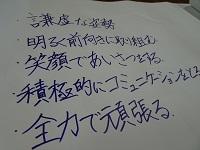 ・謙虚な姿勢
・明るく前向きに取り組む
・笑顔であいさつをする
・積極的にコミュニケーションをとる
・全力で頑張る